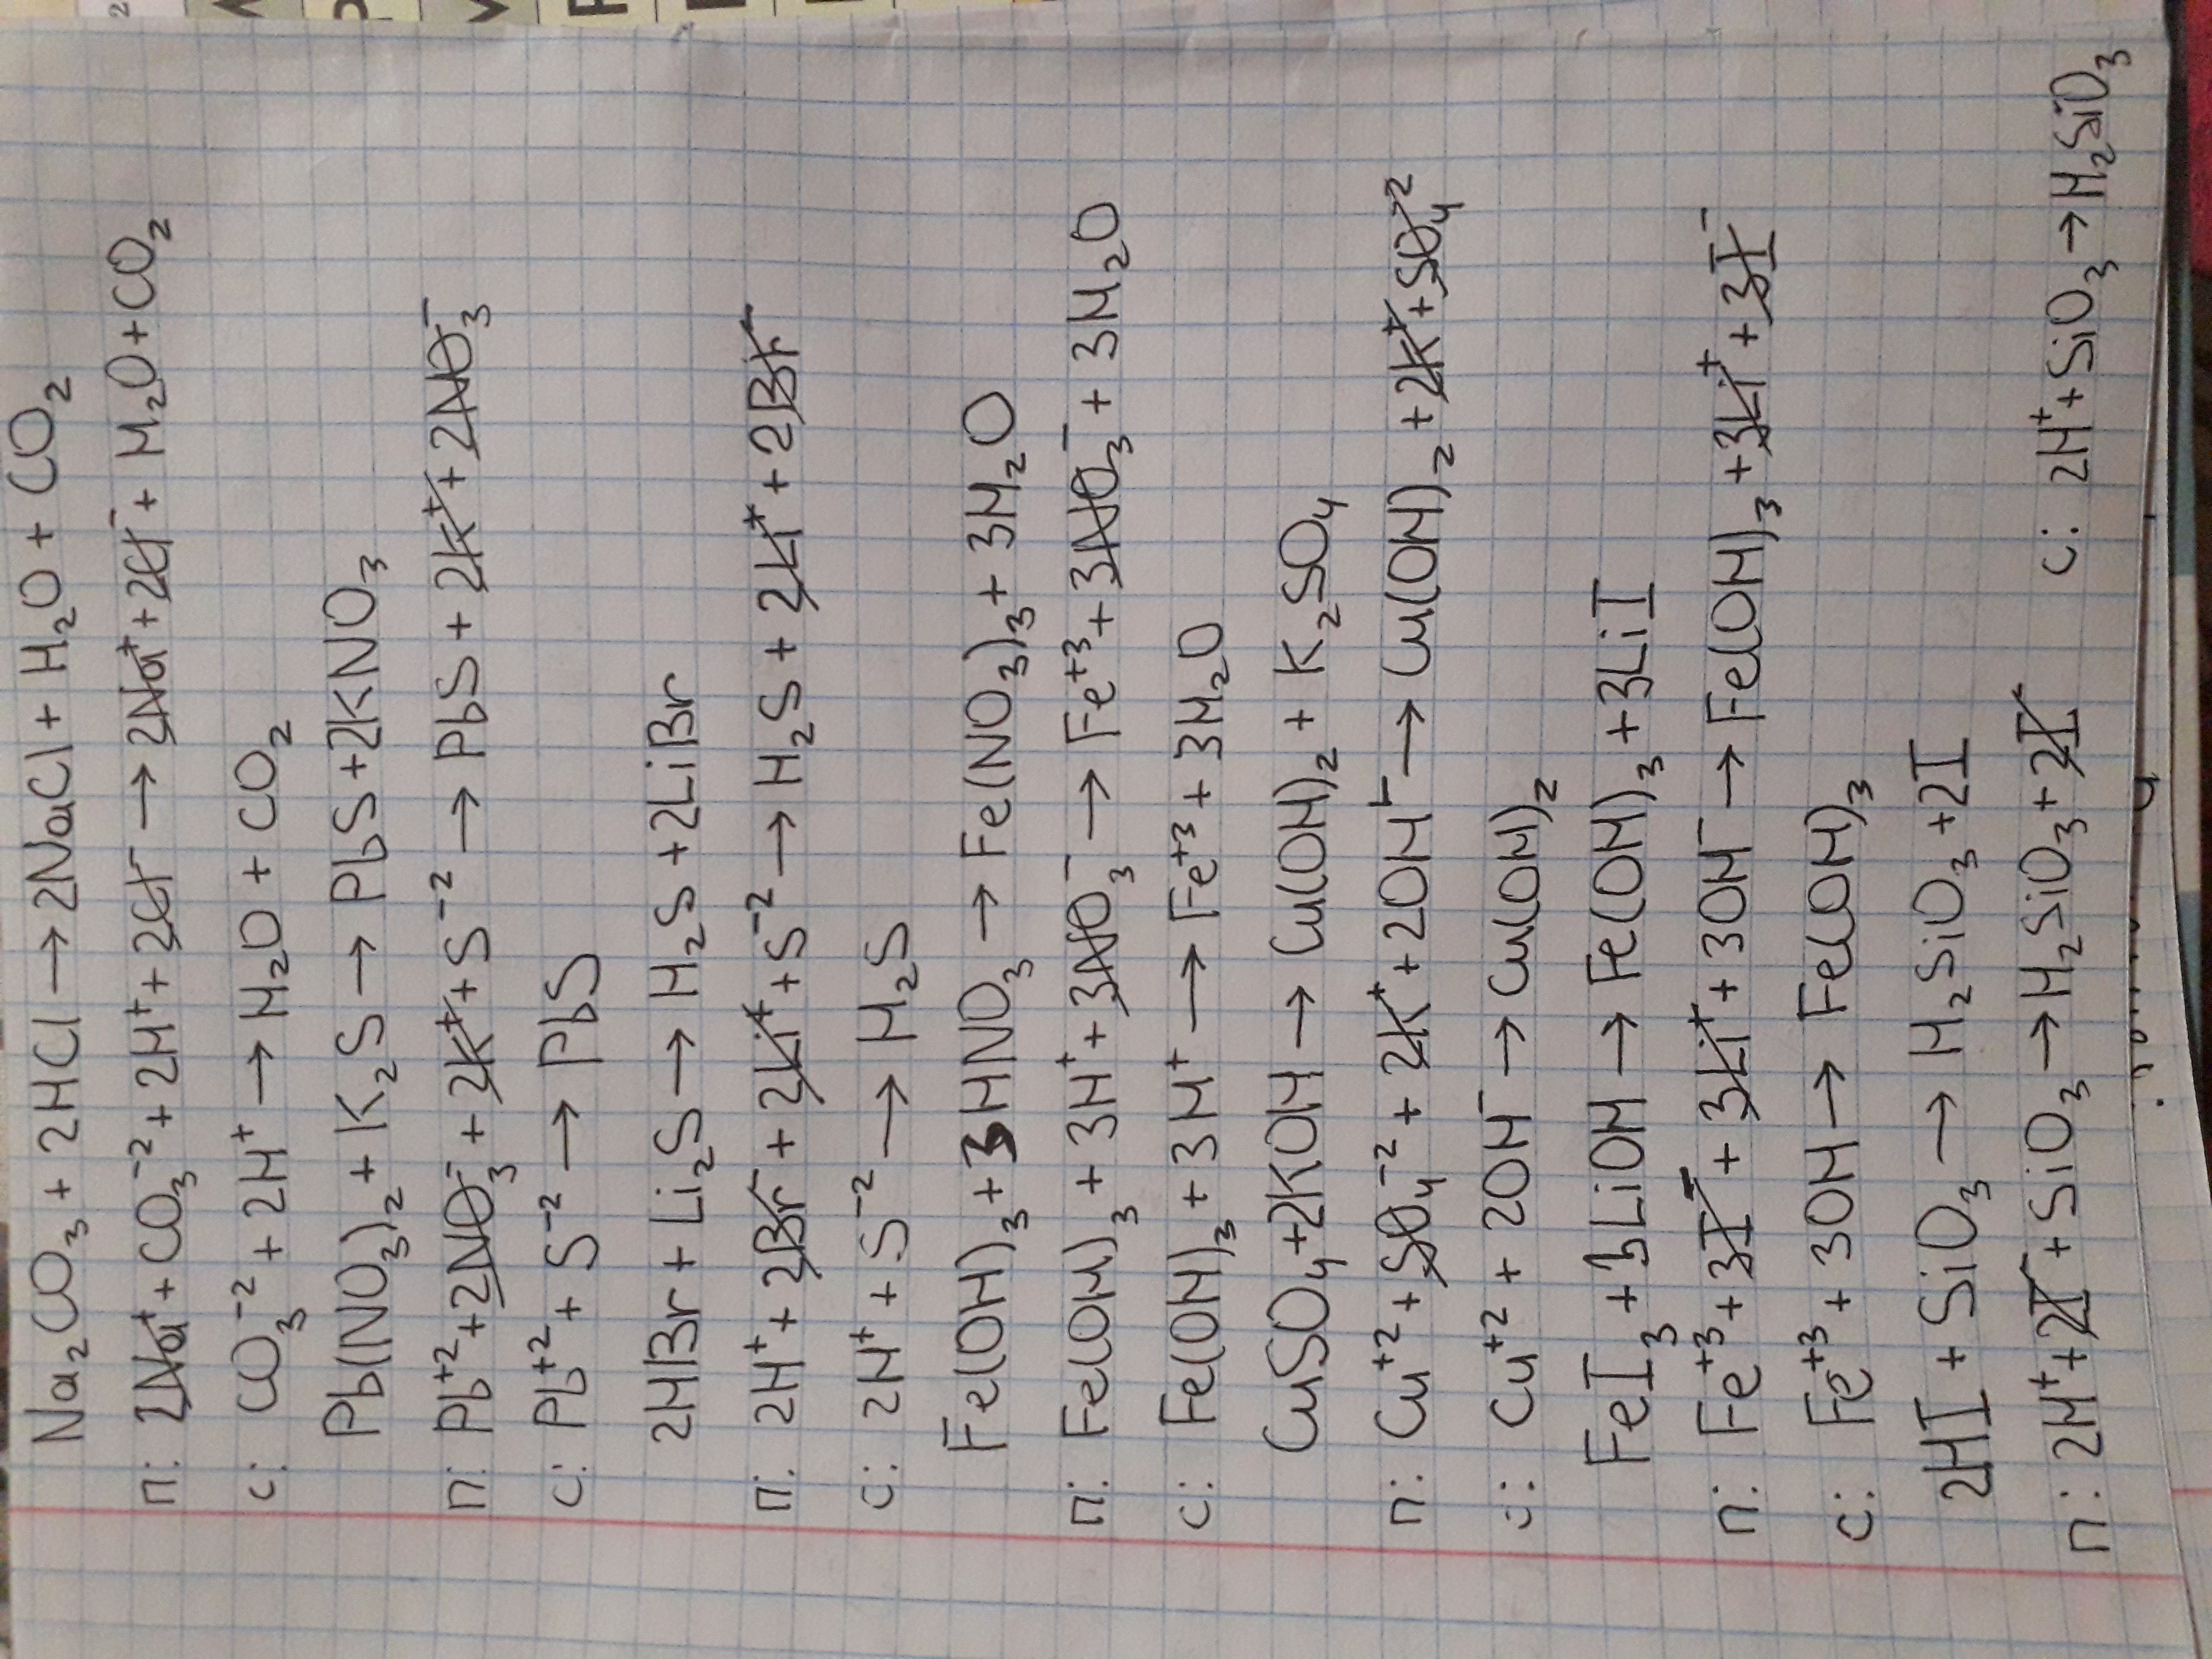 Na₂CO₃ + 2HCl → 2NaCl + H₂O + CO₂
п: 2Na⁺ + CO₃⁻² + 2H⁺ + 2Cl⁻ → 2Na⁺ + 2Cl⁻ + H₂O + CO₂
с: CO₃⁻² + 2H⁺ → H₂O + CO₂
Pb(NO₃)₂ + K₂S → PbS + 2KNO₃
п: Pb⁺² + 2NO₃⁻ + 2K⁺ + S⁻² → PbS + 2K⁺ + 2NO₃⁻
с: Pb⁺² + S⁻² → PbS
2HBr + Li₂S → H₂S + 2LiBr
п: 2H⁺ + 2Br⁻ + 2Li⁺ + S⁻² → H₂S + 2Li⁺ + 2Br⁻
с: 2H⁺ + S⁻² → H₂S
Fe(OH)₃ + 3HNO₃ → Fe(NO₃)₃ + 3H₂O
п: Fe(OH)₃ + 3H⁺ + 3NO₃⁻ → Fe⁺³ + 3NO₃⁻ + 3H₂O
с: Fe(OH)₃ + 3H⁺ → Fe⁺³ + 3H₂O
CuSO₄ + 2KOH → Cu(OH)₂ + K₂SO₄
п: Cu⁺² + SO₄⁻² + 2K⁺ + 2OH⁻ → Cu(OH)₂ + 2K⁺ + SO₄²
с: Cu⁺² + 2OH⁻ → Cu(OH)₂
FeI₃ + 3LiOH → Fe(OH)₃ + 3LiI
п: Fe⁺³ + 3I⁻ + 3Li⁺ + 3OH⁻ → Fe(OH)₃ + 3Li⁺ + 3I⁻
с: Fe⁺³ + 3OH → Fe(OH)₃
2HI + SiO₃ → H₂SiO₃ + 2I
п: 2H⁺ + 2I⁻ + SiO₃ → H₂SiO₃ + 2I⁻
с: 2H⁺ + SiO₃ → H₂SiO₃